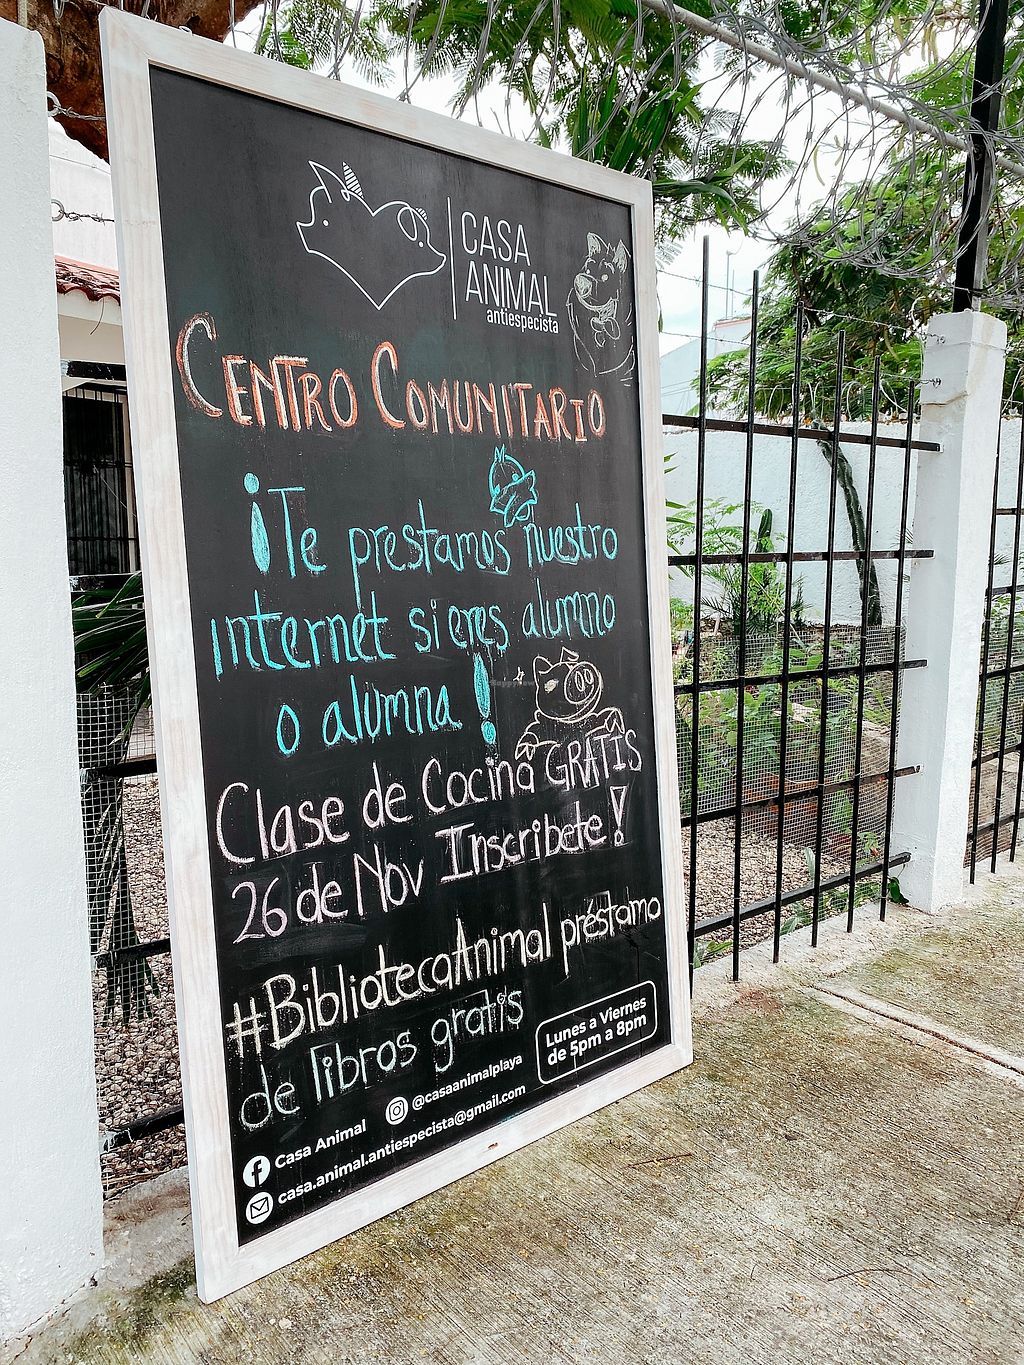 CASA
ANIMAL
antiespecista
CENTRO COMUNITARIO
¡Te prestamos nuestro
internet si eres alumno
o alumna!
Clase de Cocina GRATIS
26 de Nov Inscribete!
#BibliotecaAnimal préstamo
de libros gratis
Lunes a Viernes
de 5pm a 8pm
@casaanimalplaya
Casa Animal
casa.animal.antiespecista@gmail.com